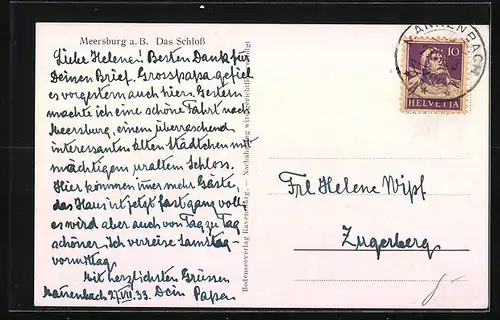 Meersburg a. B. Das Schloß
Liebe Helene! Besten Dank für
Deinen Brief. Grosspapa gefiel
es vorgestern auch hier. Gestern
machte ich eine schöne Fahrt nach
Meersburg, einem überraschend
interessanten alten Städtchen mit
mächtigem uraltem Schloss.
Hier kommen immer mehr Gäste,
das Haus ist jetzt fast ganz voll
es wird aber auch von Tag zu Tag
schöner. Ich verreise Samstag-
vormittag.
Mit herzlichsten Grüssen
Mannenbach 27.VII.33. Dein Papa
Bodenseeverlag Ravensburg. — Nachahmung wird gerichtlich verfolgt
MANNENBACH
10
HELVETIA
Frl. Helene Wipf
Zugerberg